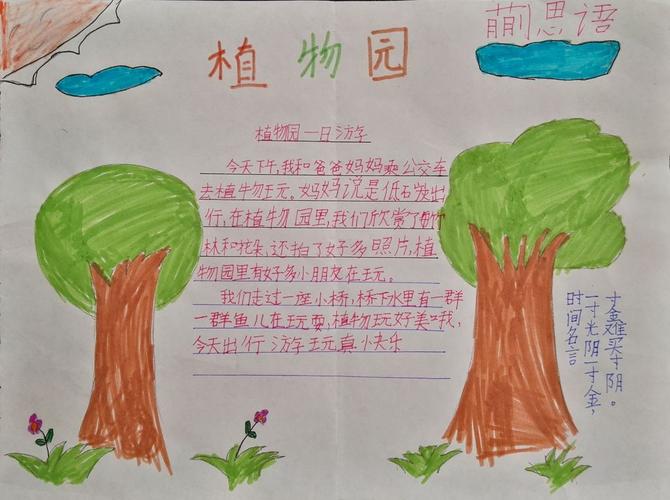 植物园
思语
植物园一日游
今天下午,我和爸爸妈妈乘公交车
去植物玩。妈妈说是低石炭出
行,在植物园里,我们欣赏了
林和花朵,还拍了好多照片,植
物园里有好多小朋友在玩。
我们走过一座小桥,桥下水里有一群
一群鱼儿在玩耍,植物玩好美哦,
今天出行游玩真快乐
时间名言
一寸光阴一寸金,
寸金难买寸阴。